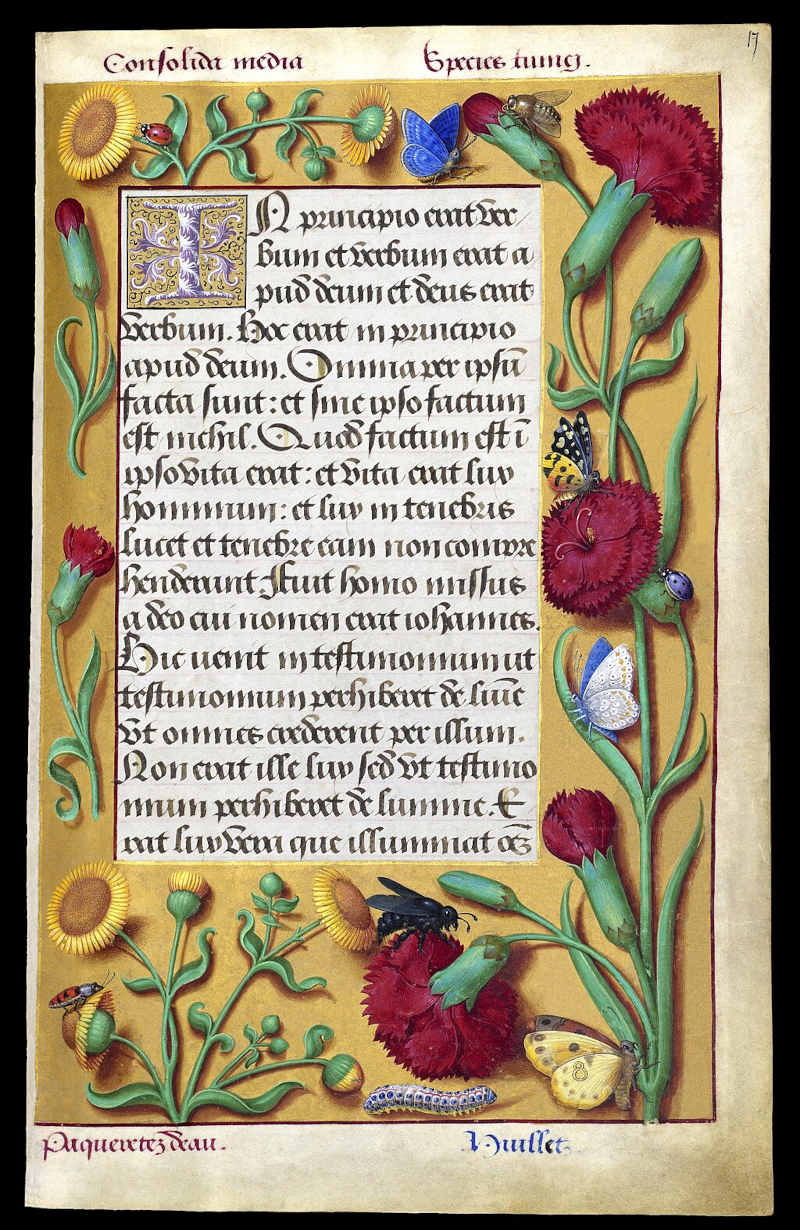 17
Consolida media
Species tunici.
IN principio erat ver
bum et verbum erat a
pud deum et deus erat
verbum. Hoc erat in principio
apud deum. Omnia per ipsū
facta sunt: et sine ipso factum
est nichil. Quod factum est ī
ipso vita erat: et vita erat lux
hominum: et lux in tenebris
lucet et tenebre eam non compre
henderunt. Fuit homo missus
a deo cui nomen erat iohannes.
Hic venit in testimonium ut
testimonium perhiberet de lumīe
Vt omnes crederent per illum.
Non erat ille lux sed vt testimo
nium perhiberet de lumine. E
rat lux vera que illuminat oēm
Paqueretez deau.